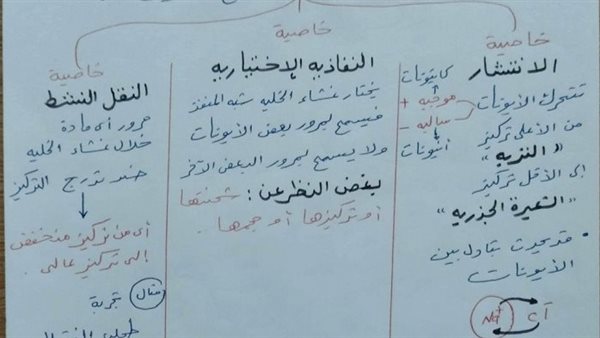 خاصية
الانتشار
تتحرك الأيونات
كاتيونات
موجبه +
سالبه -
أنيونات
من الأعلى تركيز
"التربه"
إلى الأقل تركيز
"الشعيرة الجذريه"
• قد يحدث تبادل بين
الأيونات
خاصية
النفاذيه الإختياريه
يختار غشاء الخليه شبه المنفذ
فيسمح بمرور بعض الأيونات
ولا يسمح بمرور البعض الآخر
بغض النظر عن : شحنتها
أو تركيزها أو حجمها .
خاصية
النقل النشط
مرور أى مادة
خلال غشاء الخليه
ضد تدرج التركيز
أى من تركيز منخفض
إلى تركيز عالى .
مثال تجربة